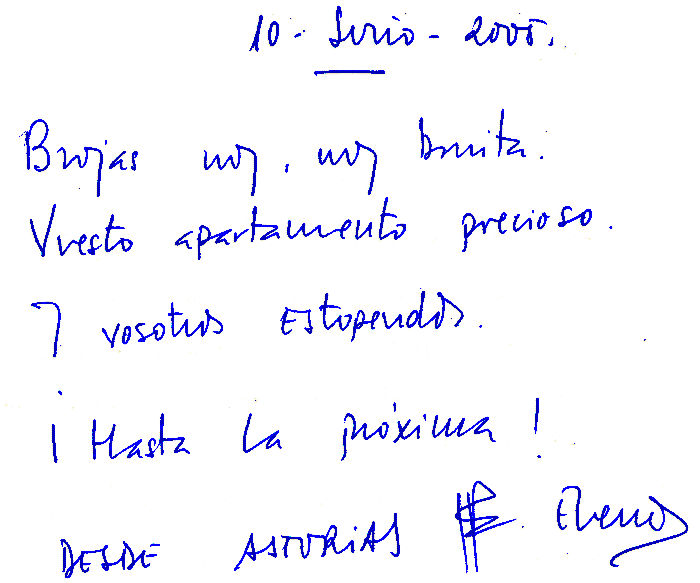 10 - Junio - 2005.
Brujas muy, muy bonita.
Vuestro apartamento precioso.
Y vosotros estupendos.
¡Hasta la próxima!
DESDE ASTURIAS